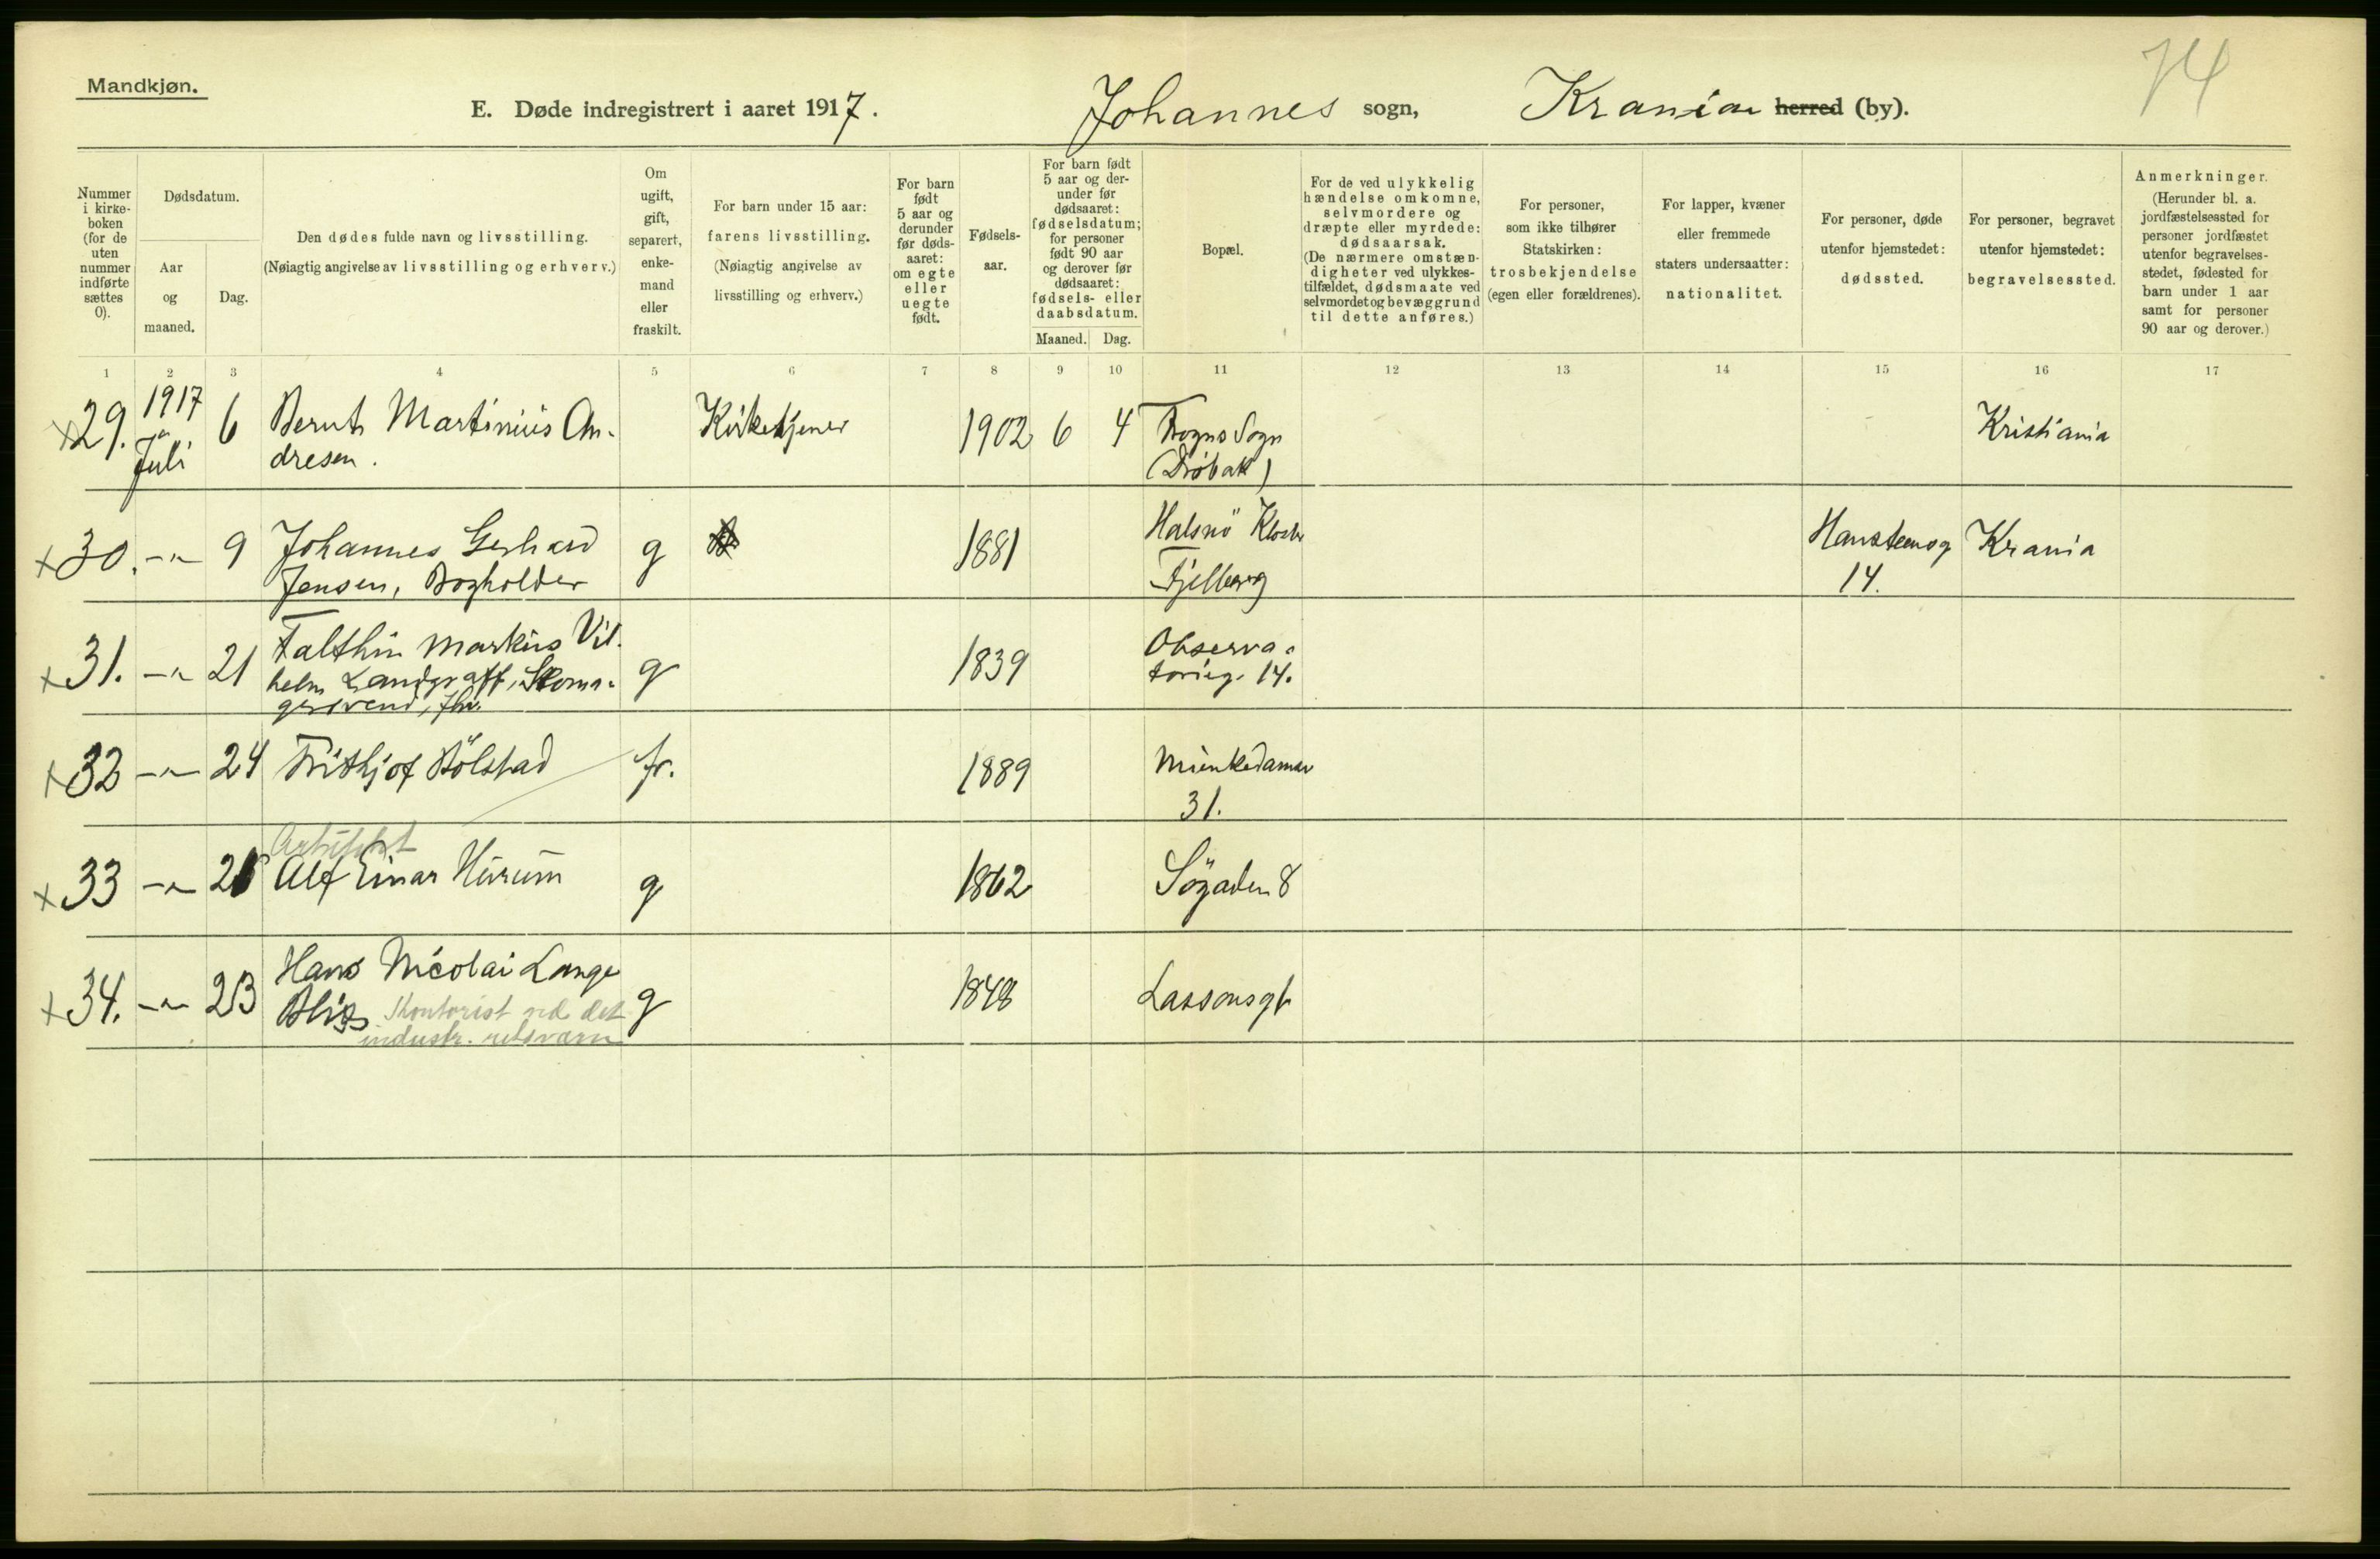 Mandkjøn.
74
E. Døde indregistrert i aaret 1917. Johannes sogn, Krania herred (by).
Nummer i kirke-boken (for de uten nummer indførte sættes 0).
Dødsdatum.
Aar og maaned.
Dag.
Den dødes fulde navn og livsstilling.
(Nøiagtig angivelse av livsstilling og erhverv.)
Om ugift, gift, separert, enke-mand eller fraskilt.
For barn under 15 aar: farens livsstilling. (Nøiagtig angivelse av livsstilling og erhverv.)
For barn født 5 aar og derunder før døds-aaret: om egte eller uegte født.
Fødsels-aar.
For barn født 5 aar og der-under før dødsaaret: fødselsdatum; for personer født 90 aar og derover før dødsaaret: fødsels- eller daabsdatum.
Maaned. Dag.
Bopæl.
For de ved ulykkelig hændelse omkomne, selvmordere og dræpte eller myrdede: dødsaarsak. (De nærmere omstæn-digheter ved ulykkes-tilfældet, dødsmaate ved selvmordet og bevæggrund til dette anføres.)
For personer, som ikke tilhører Statskirken: trosbekjendelse (egen eller forældrenes).
For lapper, kvæner eller fremmede staters undersaatter: nationalitet.
For personer, døde utenfor hjemstedet: dødssted.
For personer, begravet utenfor hjemstedet: begravelsessted.
Anmerkninger. (Herunder bl. a. jordfæstelsessted for personer jordfæstet utenfor begravelses-stedet, fødested for barn under 1 aar samt for personer 90 aar og derover.)
1 2 3 4 5 6 7 8 9 10 11 12 13 14 15 16 17
×29. 1917 Juli 6 Bernt Martinius An- Kirketjener 1902 6 4 Frogns Sogn Kristiania
dresen. (Drøbak)
×30. -"- 9 Johannes Gerhard g 1881 Halsnö Kloster Hansteensg Krania
Jensen, Bogholder Fjelberg 14.
×31. -"- 21 Falthin Markus Vil- g 1839 Observa-
helm Landgraff, Skoma- torieg. 14.
gersvend, fhv.
×32 -"- 24 Frithjof Bölstad fr. 1889 Munkedamsv
31.
Artist
×33 -"- 21 Alf Einar Hurum g 1862 Sögaden 8
×34. -"- 23 Hans Nicolai Lange g 1848 Lassonsgt
Blix Kontorist ved det
industr. retsværn